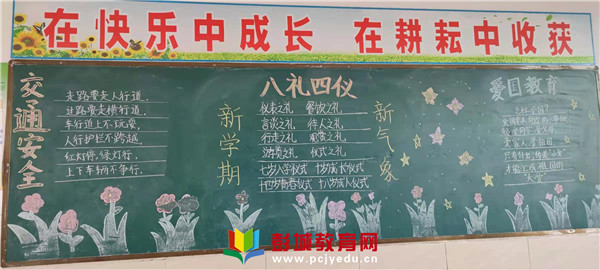 在快乐中成长 在耕耘中收获
交通安全
走路要走人行道,
过路要走横行道,
车行道上不玩耍,
人行护栏不跨越,
红灯停,绿灯行,
上下车时不争行,
新学期
八礼四仪
仪表之礼 餐饮之礼
言谈之礼 待人之礼
行走之礼 观赏之礼
游览之礼 仪式之礼
七岁入学仪式 十岁成长仪式
十四岁青春仪式 十八岁成人仪式
新气象
爱国教育
彭城教育网
www.pcjyedu.cn